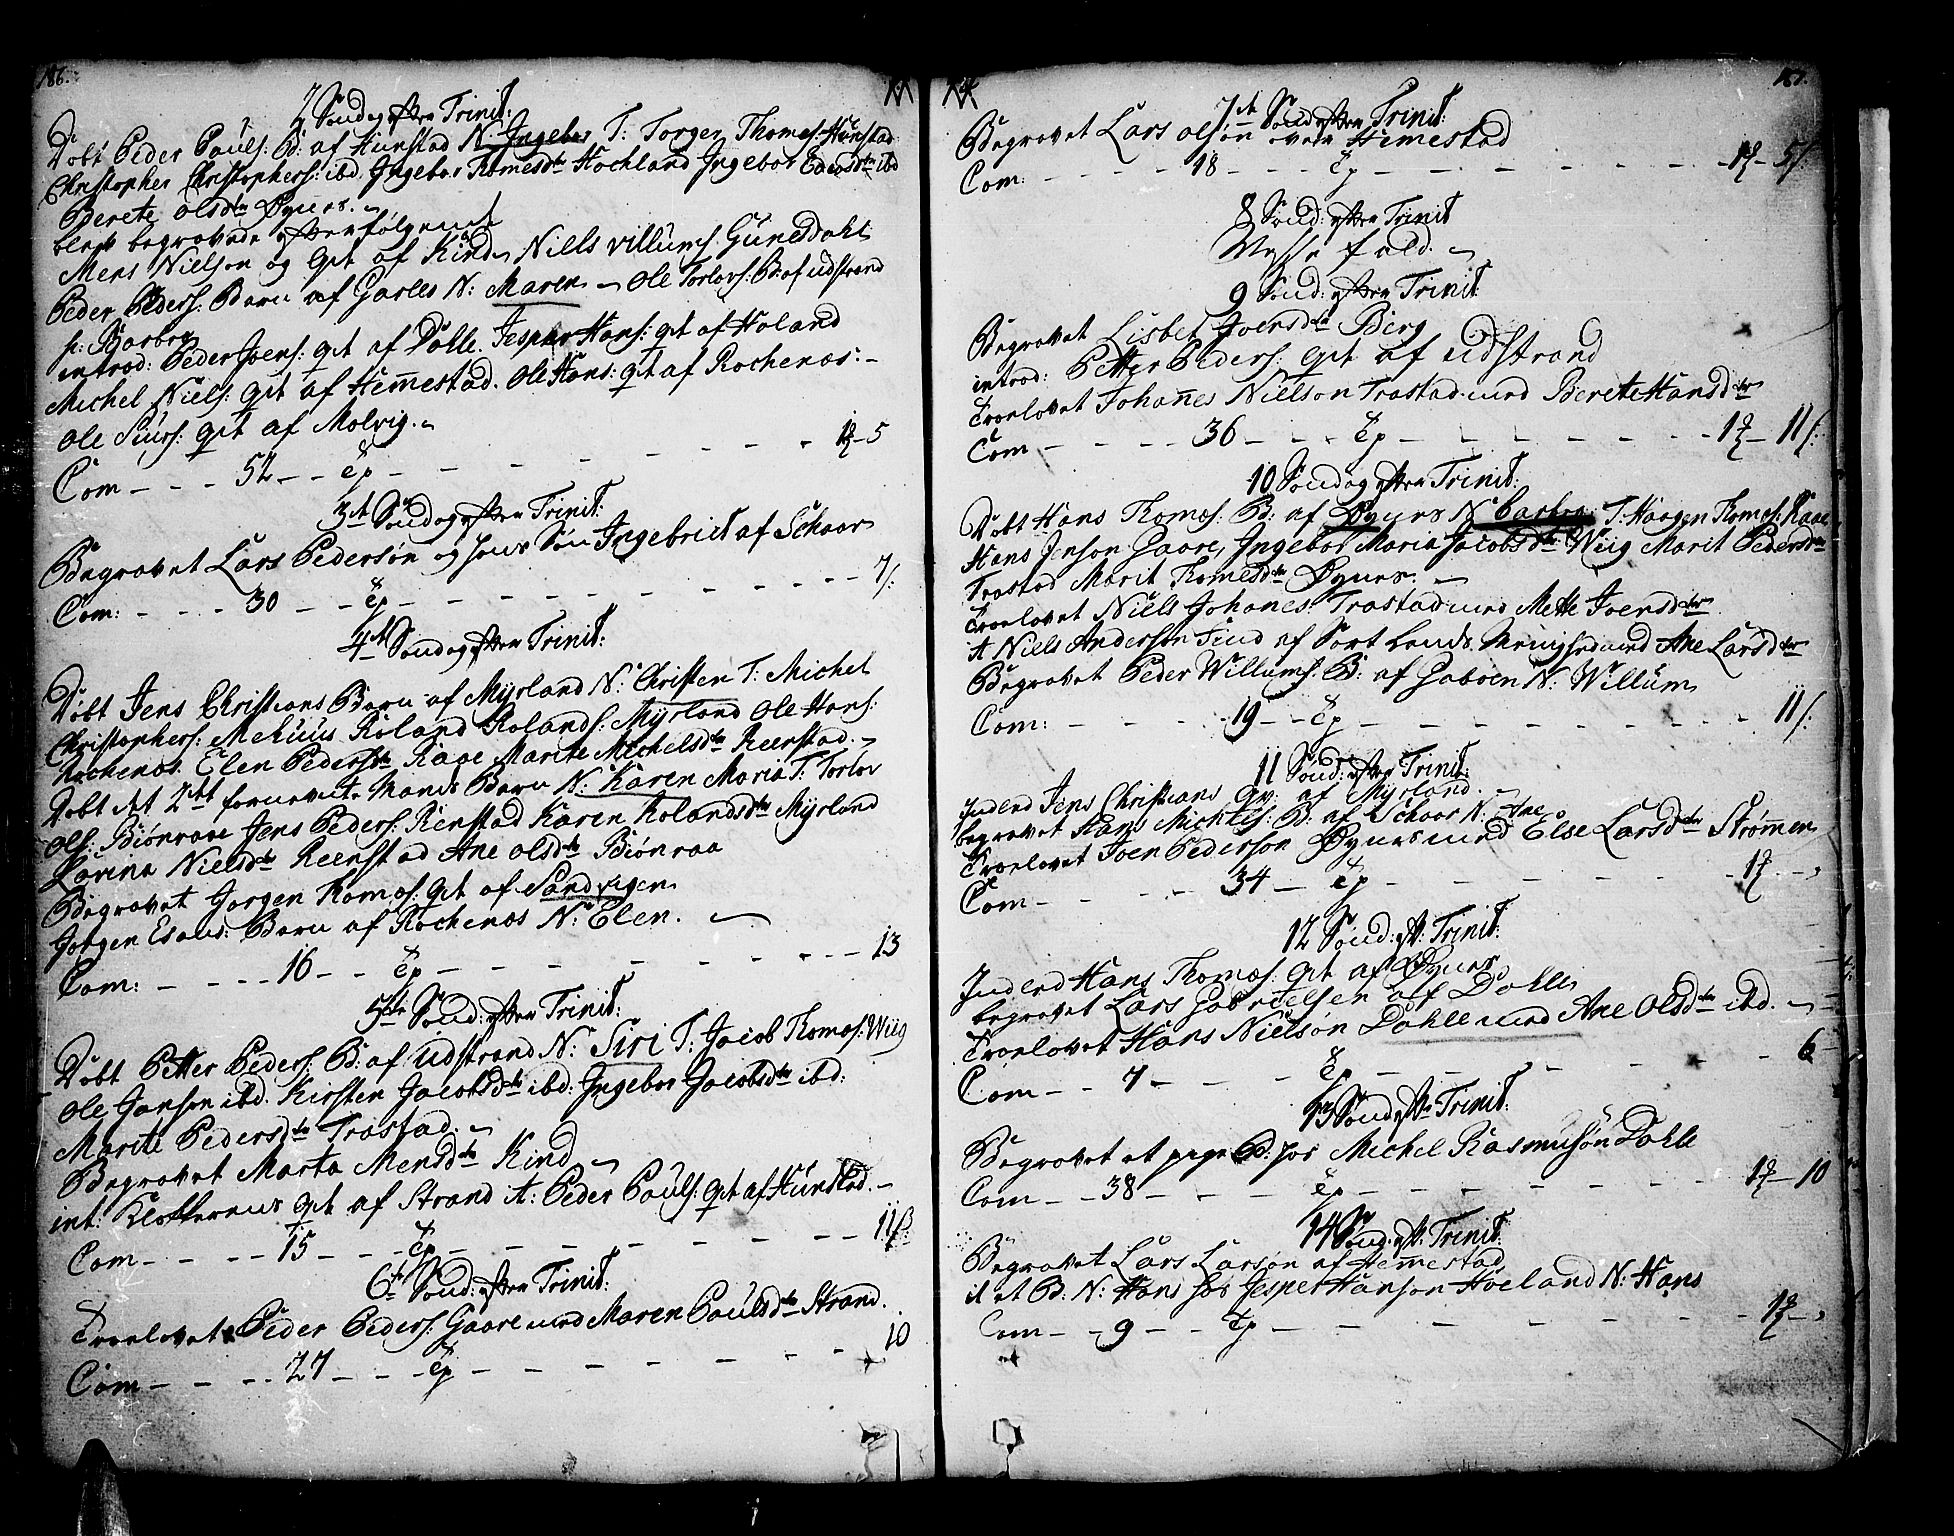 186.
2 Søndag efter Trinit:
Døbt Peder Pouls: B: af Hunstad N: Ingebor T: Torger Thomes: Hunstad
Christopher Christophers: ibd. Ingebor Thomesdtr Hochland Ingebor ibd
Berete Olsdtr Øynes.
blev begravede efterfølgende
Mens Nielson og qvt af Kind Niels Villums: Gunesdahl
Peder Peders: Barn af Garee N: Maren Ole Torlovs: B: af udstrand
N: Barbra
introd: Peder Joens: qvt af Dolle. Jesper Hans: qvt af Holand
Michel Niels: qvt af Hemestad. Ole Hans: qvt af Rochenæs:
Ole Siurs: qvt af Molvig.
Com - - - 52 - - Ep - - - 1 - 5
3de Søndag efter Trinit:
Begravet Lars Pedersøn og hans Søn Ingebrict af Schaar
Com: - - - 30 - - Ep - - - 7/:
4de Søndag efter Trinit:
Døbt Jens Christians Barn af Myrland N: Christen T: Michel
Christophers: Mehuus Roland Rolands: Myrland Ole Hans:
Rochenæs. Elen Pedersdtr Raae Marite Michelsdtr Reenstad.
Døbt det 2det fornevnte Mands Barn N: Karen Maria T: Torlov
Ols: Biønraae Jens Peders: Renstad Karen Rolandsdtr Myrland
Karina Nielsdtr Reenstad Ane Olsdtr Biønraa
Begravet Jørgen Thomæs: qvt af Sandvigen
Jørgen Barn af Rochenæs N: Elen.
Com: - - - 16 - - Ep - - - 13
5te Sønd: efter Trinit:
Døbt Petter Peders: B: af udstrand N: Siri T: Jacob Thomæs: Wiig
Ole Janson ibd. Kirsten Jacobsdtr ibd: Ingebor Jacobsdtr ibd:
Marite Pedersdtr Trastad.
Begravet Marta Mensdtr Kind
int: Klokkerens qvt af Strand it: Peder Pouls: qvt af Hunstad.
Com - - - 15 - - - Ep - - - 11/:
6te Sønd: efter Trinit:
Troelovet Peder Peders: Gaare med Maren Poulsdtr Strand.
Com - - - 27 - - - Ep - - - 10
187.
7de Sønd efter Trinit:
Begravet Lars Olsøn Hemestad
Com: - - - 18 - - - Ep - - - 1 - 5/:
8 Sønd: efter Trinit
Messe fald.
9 Sønd: efter Trinit
Begravet Lisbet Joersdtr Berg
introd: Petter Peders: qvt af udstrand
Troelovet Johannes Nielson Trastad med Berete Hansdtr
Com - - - 36 - - - Ep - - - 1 - 11/:
10 Søndag efter Trinit:
Døbt Hans Thomæs: B: af Øynes N: Barbra T: Haagen Thomæs: Raae
Hans Jenson Gaare, Ingebor Maria Jacobsdtr Wiig Marit Pedersdtr
Trastad Marit Thomesdtr Øynes.
Troelovet Niels Johanes: Trastad med Mette Joensdtr
it Niels Anderson Find af Sortlands Menighed med Ane Larsdtr
Begravet Peder Willums: B: af Gaboen N: Willum
Com: - - - 19 - - Ep - - - 11/:
11 Sønd: efter Trinit:
Inderd Jens Christians qv: af Myrland.
begravet Hans Michels: B: af Schaar N: Ane
Troelovet Joen Pederson Øynes med Else Larsdtr Strømmen
Com - - - 34 - Ep - - - 1 - -
12 Sønd: eft: Trinit:
Inderd Hans Thomæs: qvt af Øynes
begravet Lars Gabrielsen af Dahle
Troelovet Hans Nielsøn Dahle med Ane Olsdtr ibd.
Com - - 7 - - - Ep - - - 6
13 Sønd efter Trinit:
Begravet et pige B: hos Michel Rasmusøn Dahle
Com - - 38 - - - Ep - - - 1 - 10
14 Sønd: eft: Trinit:
Begravet Lars Larsøn af Hemestad
it et B: N: Hans hos Jesper Hanson Høeland N: Hans
Com - - 9 - - Ep - - - 1 -